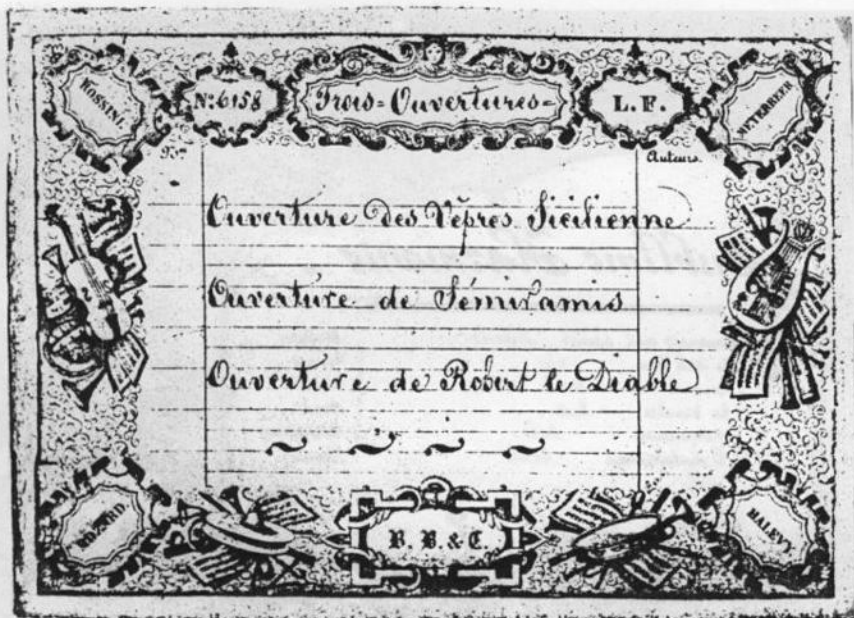 ROSSINI
Nº 6158
Trois=Ouvertures=
L. F.
MEYERBEER
Auteurs.
Ouverture des Vêpres Sicilienne
Ouverture de Sémiramis
Ouverture de Robert le Diable
B. B. & C.
HALEVY